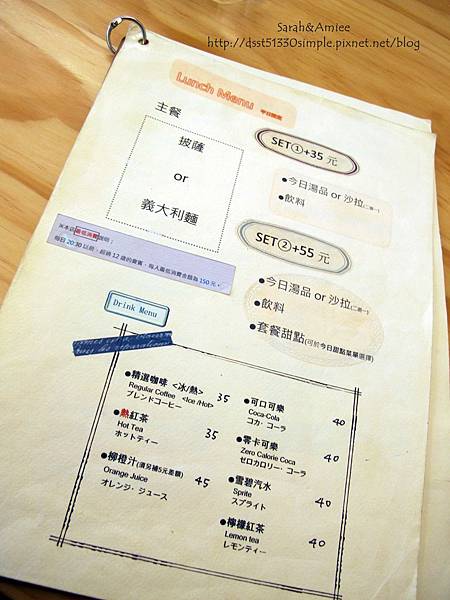 Sarah&Amiee
http://dsst51330simple.pixnet.net/blog
Lunch Menu 平日限定
主餐
披薩
or
義大利麵
SET①+35 元
●今日湯品 or 沙拉(二選一)
●飲料
SET②+55 元
●今日湯品 or 沙拉(二選一)
●飲料
●套餐甜點(可於今日甜點菜單選擇)
※本店最低消費說明：
每日 20:30 以前，超過 12 歲的貴賓，每人最低消費金額為 150 元。
Drink Menu
●精選咖啡 <冰/熱> 35
Regular Coffee <Ice /Hot>
ブレンドコーヒー
●熱紅茶 35
Hot Tea
ホットティー
●柳橙汁(須另補5元差額) 45
Orange Juice
オレンジ・ジュース
●可口可樂 40
Coca-Cola
コカ・コーラ
●零卡可樂 40
Zero Calorie Coca
ゼロカロリー・コーラ
●雪碧汽水 40
Sprite
スプライト
●檸檬紅茶 40
Lemon tea
レモンティー